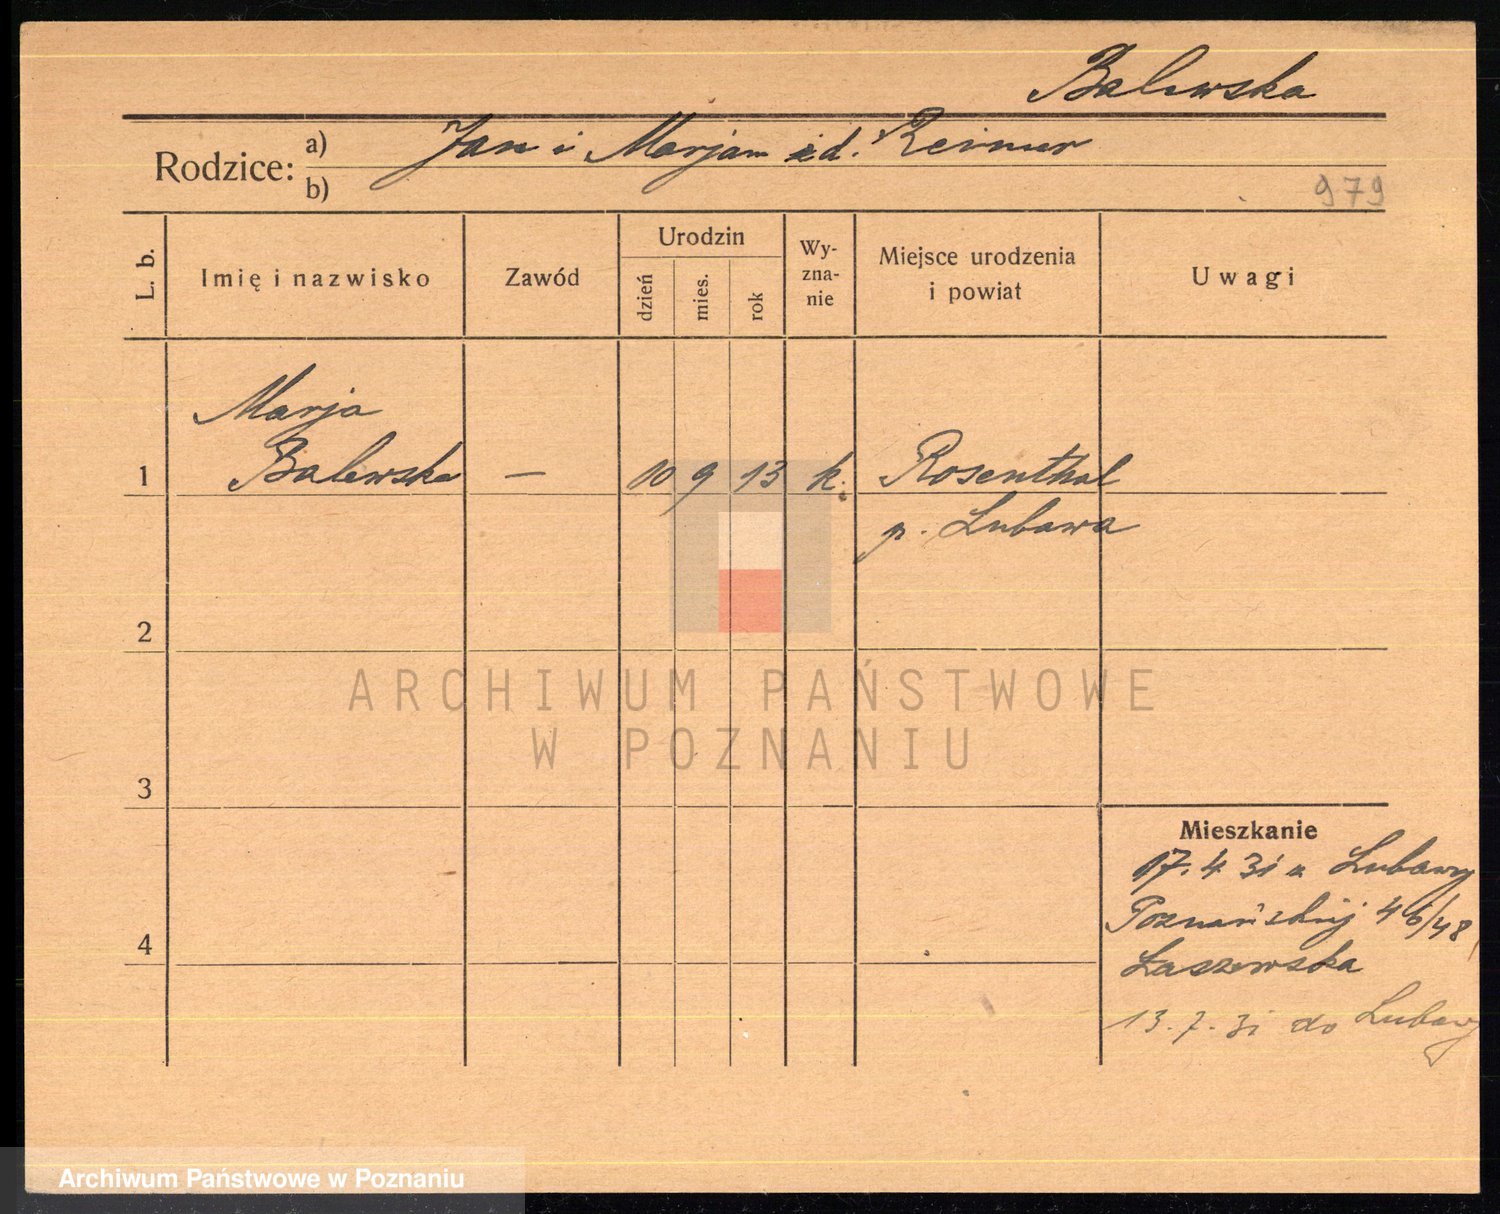 Balewska
Rodzice: a) Jan i Marjan zd. Reimer
b)
979
L. b.
Imię i nazwisko
Zawód
Urodzin
dzień
mies.
rok
Wy-
zna-
nie
Miejsce urodzenia
i powiat
Uwagi
Marja
1 Balewska — 10 9 13 k. Rosenthal
p. Lubawa
2
ARCHIWUM PAŃSTWOWE
W POZNANIU
3
Mieszkanie
17. 4 31 z Lubawy
Poznańskiej 46/48
4
Łaszewska
13. 7. 31 do Lubawy
Archiwum Państwowe w Poznaniu